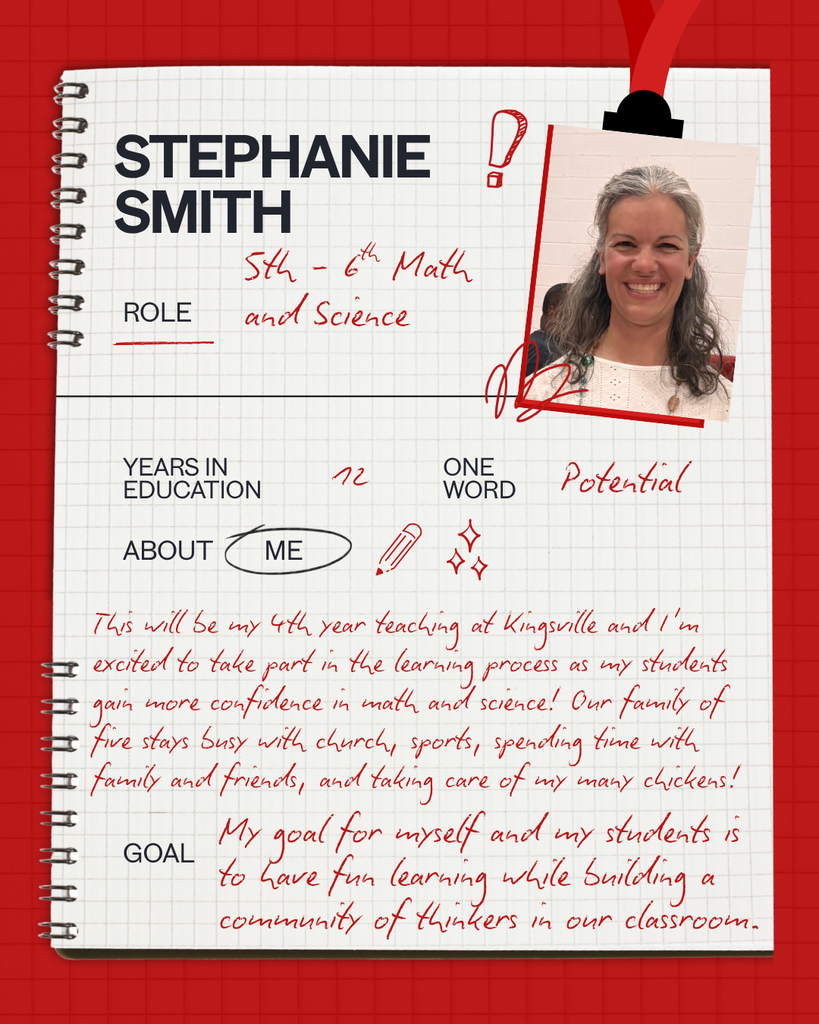 STEPHANIE
SMITH
ROLE
5th - 6th Math
and Science
YEARS IN
EDUCATION
12
ONE
WORD
Potential
ABOUT ME
This will be my 4th year teaching at Kingsville and I'm
excited to take part in the learning process as my students
gain more confidence in math and science! Our family of
five stays busy with church, sports, spending time with
family and friends, and taking care of my many chickens!
GOAL
My goal for myself and my students is
to have fun learning while building a
community of thinkers in our classroom.